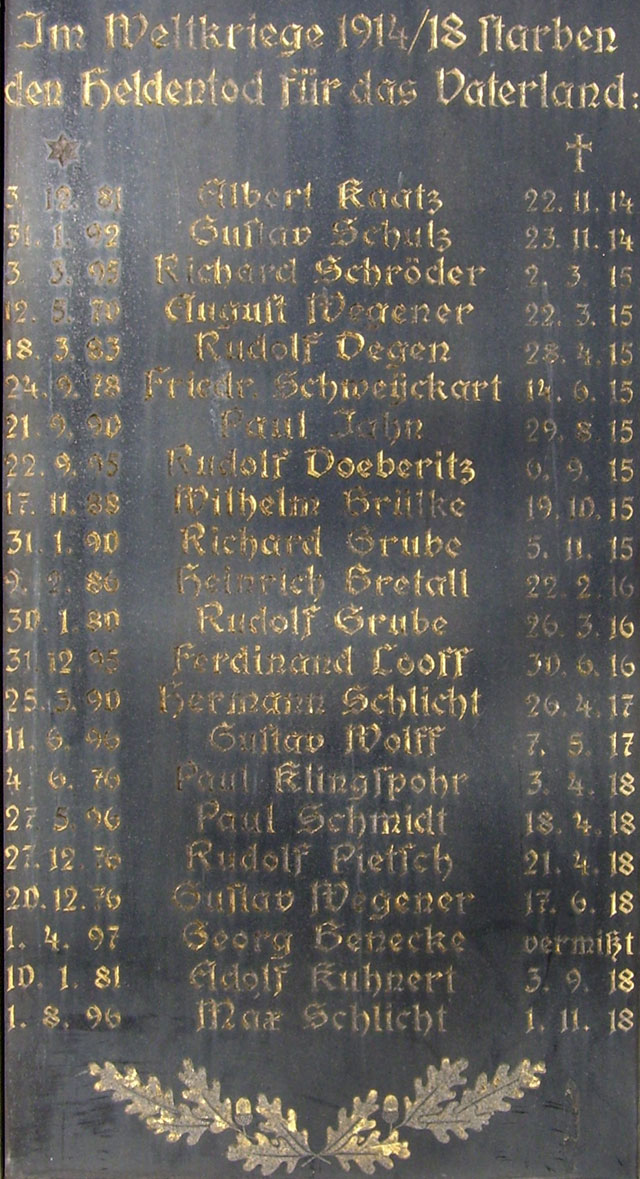 Im Weltkriege 1914/18 starben
den Heldentod für das Vaterland:
3. 12. 81 Albert Kaatz 22. 11. 14
31. 1. 92 Gustav Schulz 23. 11. 14
3. 3. 95 Richard Schröder 2. 3. 15
12. 5. 70 August Wegener 22. 3. 15
18. 3. 83 Rudolf Degen 28. 4. 15
24. 9. 78 Friedr. Schweijckart 14. 6. 15
21. 9. 90 Paul Jahn 29. 8. 15
22. 9. 95 Rudolf Doeberitz 6. 9. 15
17. 11. 88 Wilhelm Brülke 19. 10. 15
31. 1. 90 Richard Grube 5. 11. 15
9. 2. 86 Heinrich Gretall 22. 2. 16
30. 1. 80 Rudolf Grube 26. 3. 16
31. 12. 95 Ferdinand Looff 30. 6. 16
25. 3. 90 Hermann Schlicht 26. 4. 17
11. 6. 96 Gustav Wolff 7. 5. 17
4. 6. 76 Paul Klingspohr 3. 4. 18
27. 5. 96 Paul Schmidt 18. 4. 18
27. 12. 76 Rudolf Pietsch 21. 4. 18
20. 12. 76 Gustav Wegener 17. 6. 18
1. 4. 97 Georg Benecke vermißt
10. 1. 81 Adolf Kuhnert 3. 9. 18
1. 8. 96 Max Schlicht 1. 11. 18